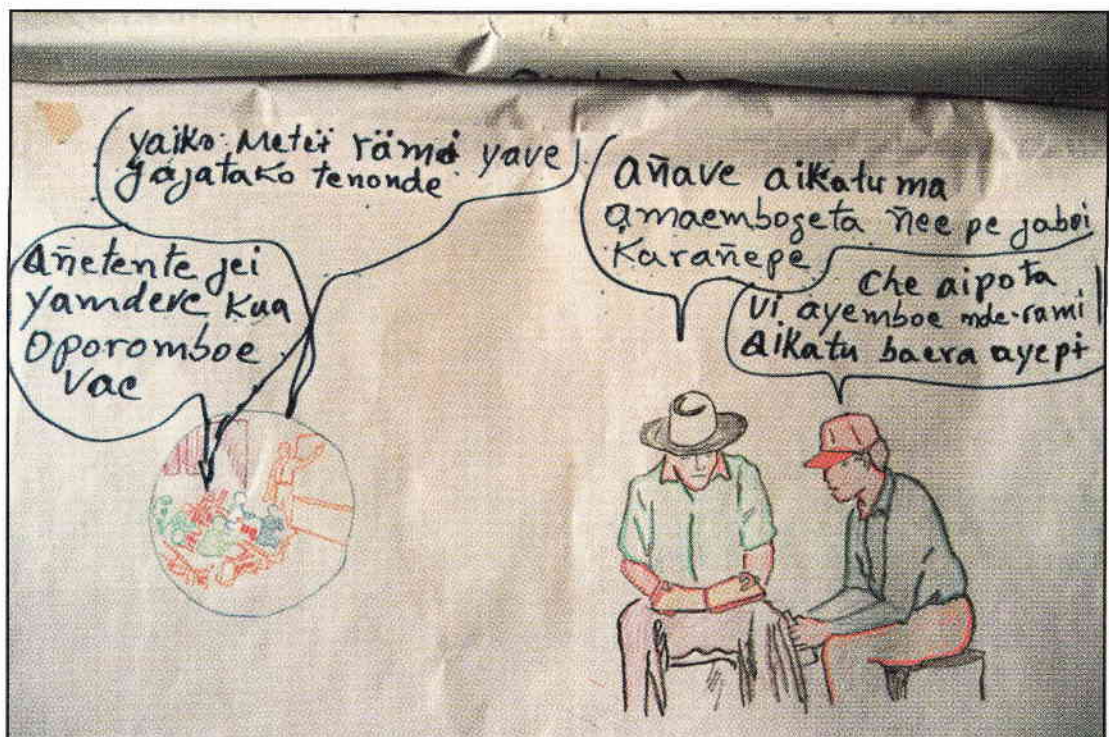 yaiko. Meteï rämi yave
jajatako tenonde.
Añetente jei
yamdere kua
oporomboe
vae
Añave aikatu ma
amaembogeta ñee pe jaboi
Karañepe
Che aipota
vi ayemboe nde-rami
aikatu baera ayepɨ